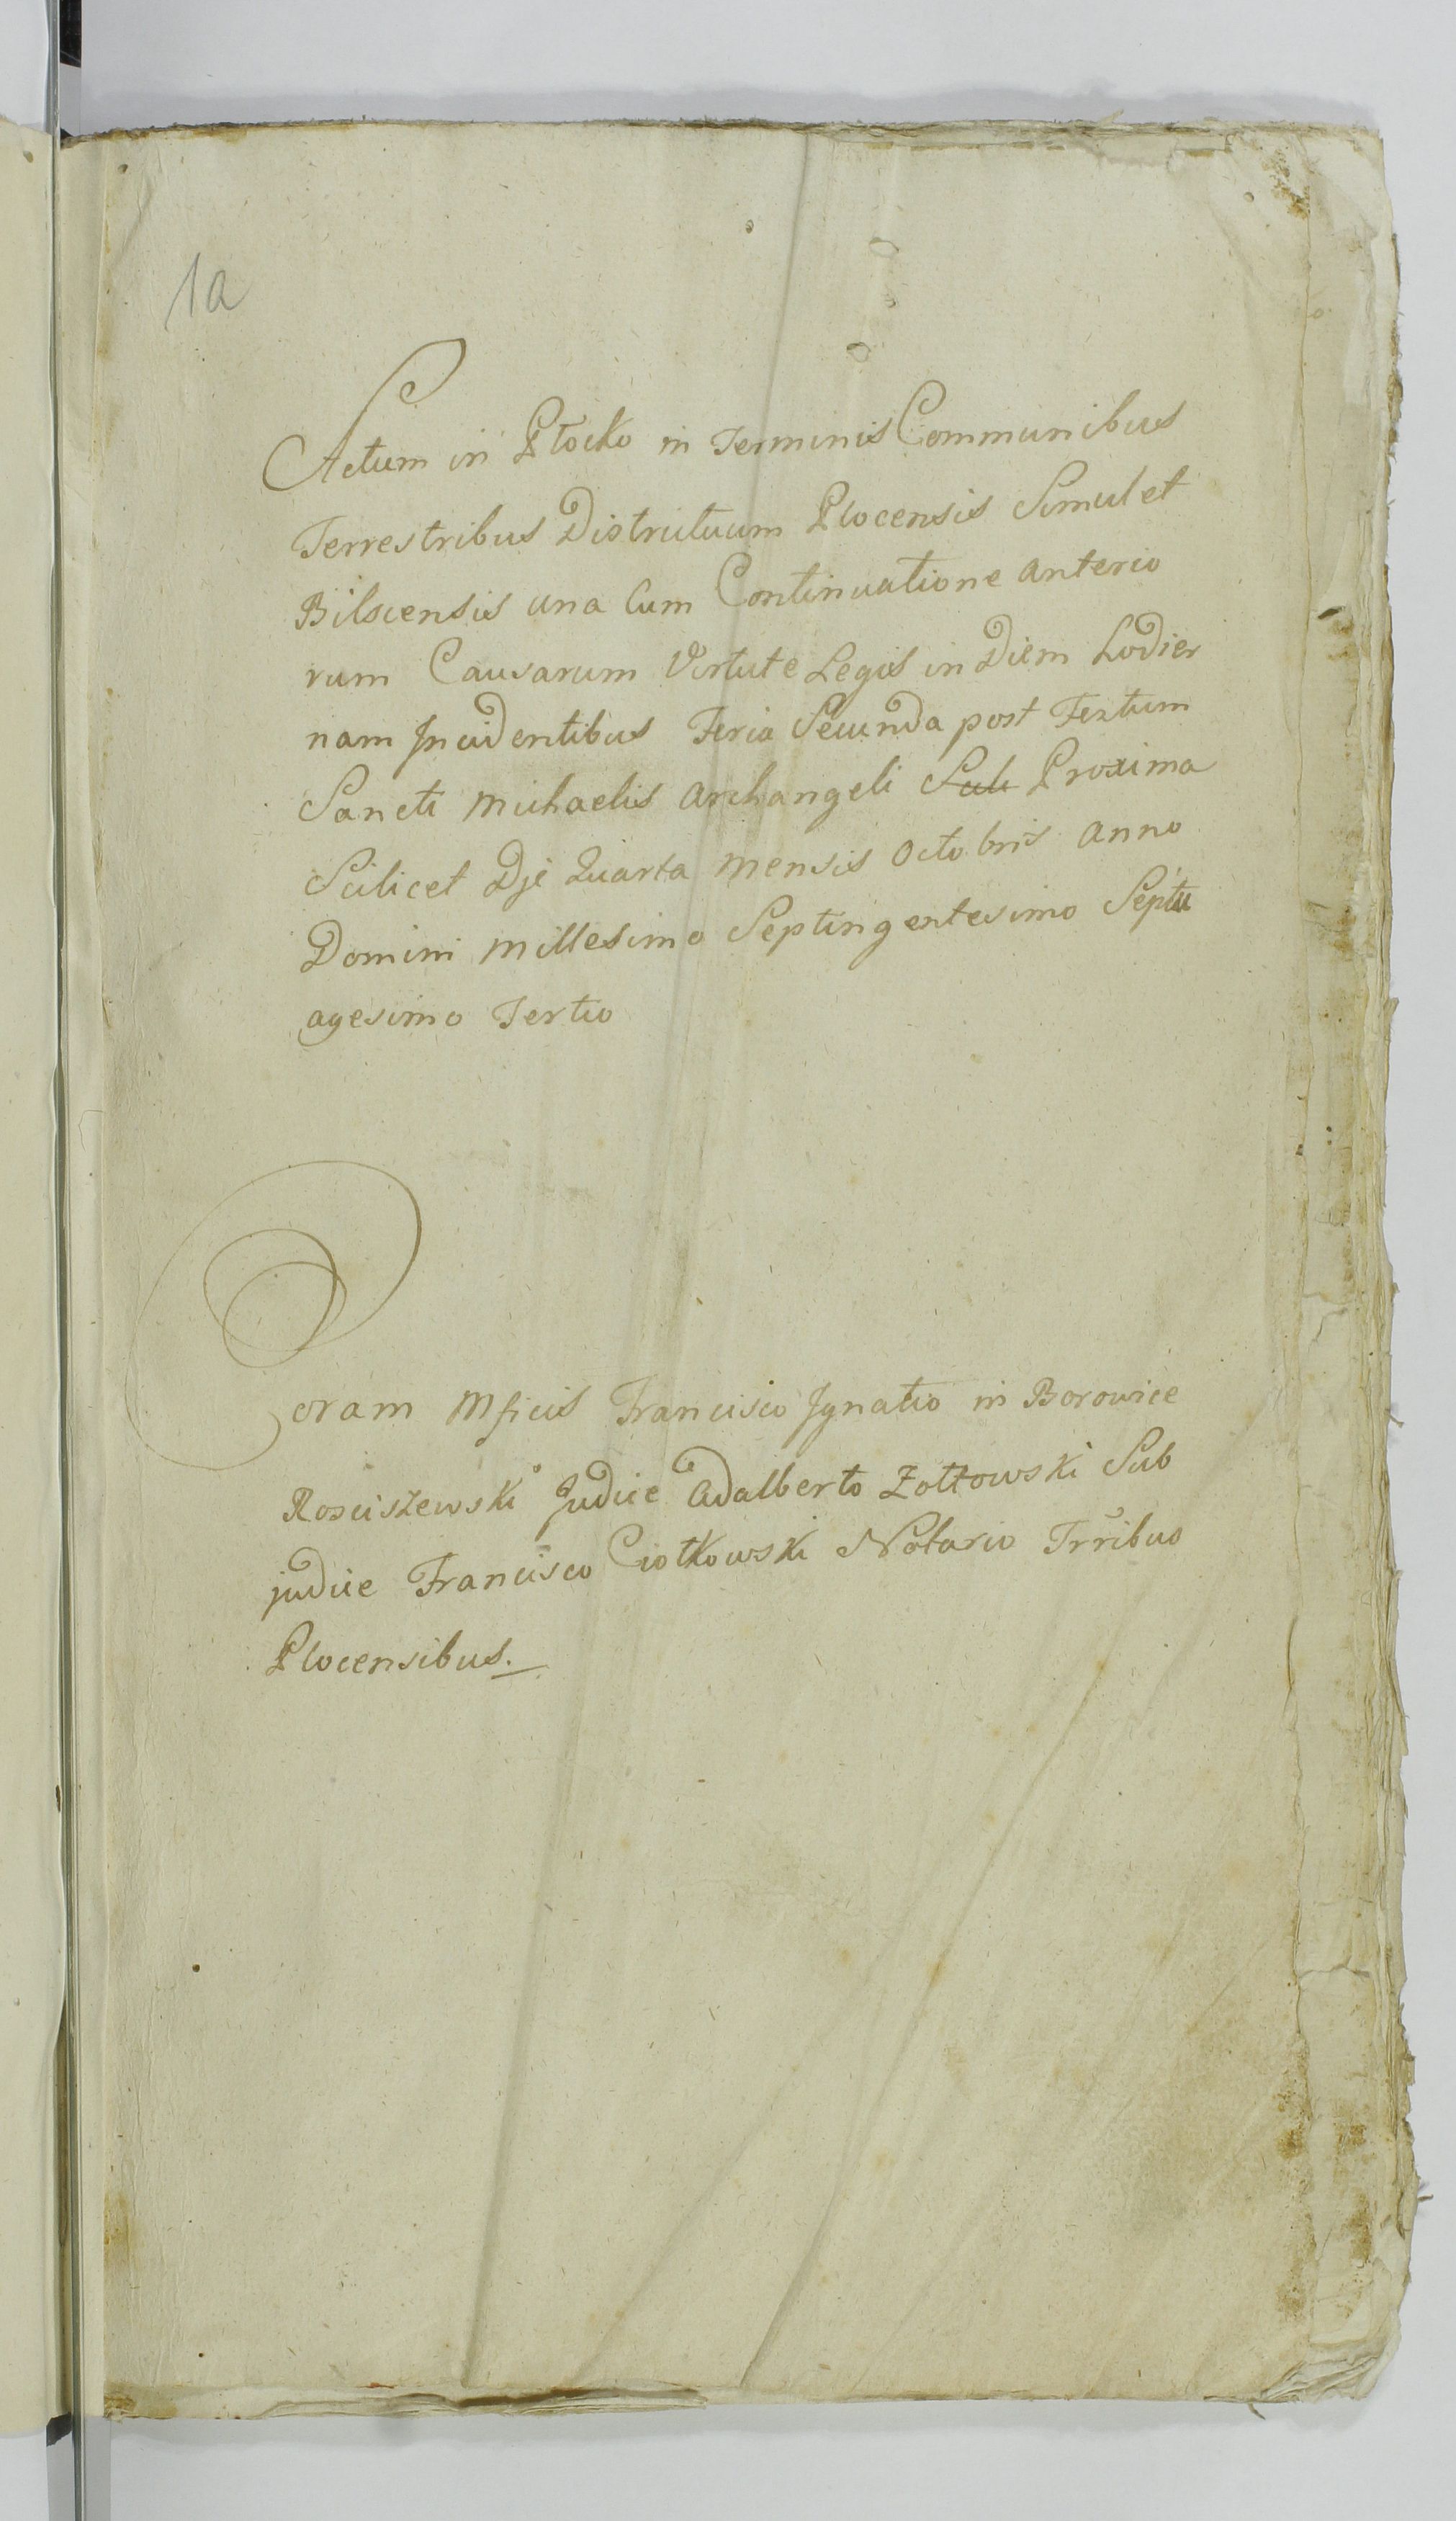 1a
Actum in Płocko in Terminis Communibus
Terrestribus Districtuum Plocensis Simul et
Bilscensis una Cum Continuatione anterio
rum Causarum Virtute Legis in Diem hodier
nam Incidentibus Feria Secunda post Festum
Sancti Michaelis Archangeli Proxima
Scilicet Dje Quarta Mensis Octobris Anno
Domini Millesimo Septingentesimo Septu
agesimo Tertio
Coram Mficis Francisco Ignatio in Borowice
Rosciszewski Judice Adalberto Zołtowski Sub
judice Francisco Ciołkowski Notario Trribus
Plocensibus.